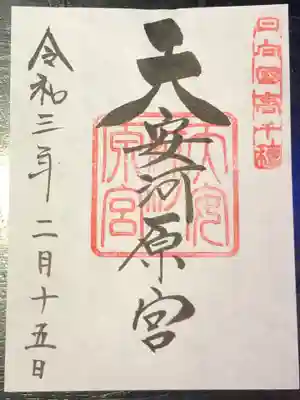 日向国高千穂
天安河原宮
天安河原宮
令和三年二月十五日